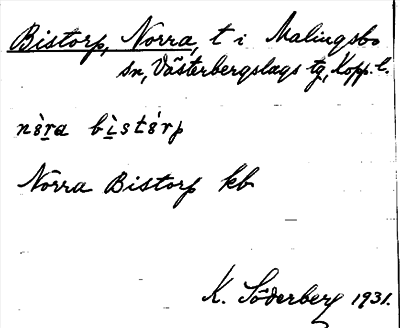 Bistorp, Norra, t i Malingsbo
sn, Västerbergslags tg, Kopp. l.
nè̱ra bì̱stórp
Norra Bistorp kb
K. Söderberg 1931.